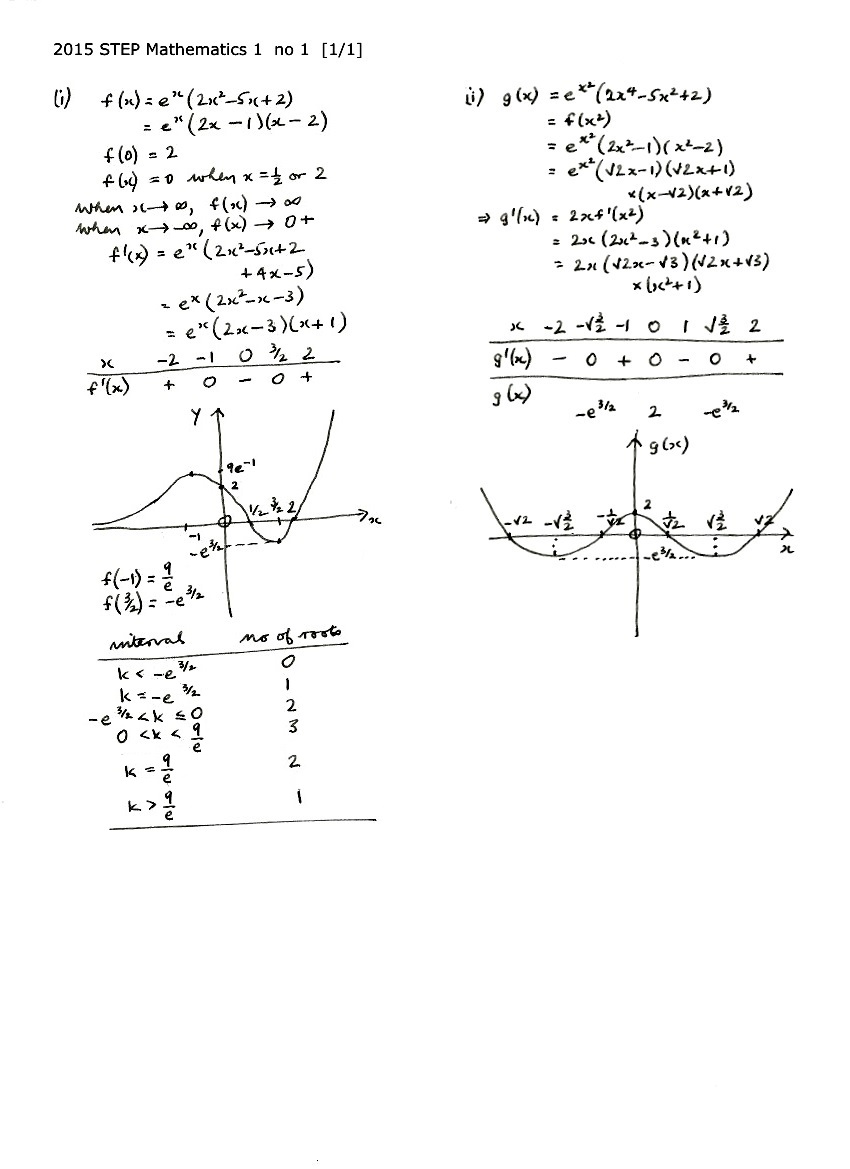 2015 STEP Mathematics 1 no 1 [1/1]
(i) f(x) = eˣ(2x²−5x+2)
= eˣ(2x −1)(x − 2)
f(0) = 2
f(x) = 0 when x = ½ or 2
when x → ∞, f(x) → ∞
when x → −∞, f(x) → 0+
f'(x) = eˣ(2x²−5x+2
+4x−5)
= eˣ(2x²−x−3)
= eˣ(2x−3)(x+1)
x −2 −1 0 3/2 2
f'(x) + 0 − 0 +
Y
9e⁻¹
2
1/2 3/2 2
x
0
−1
−e^3/2
f(−1) = 9/e
f(3/2) = −e^3/2
interval no of roots
k < −e^3/2 0
k = −e^3/2 1
−e^3/2 < k ≤ 0 2
0 < k < 9/e 3
k = 9/e 2
k > 9/e 1
ii) g(x) = e^x²(2x⁴−5x²+2)
= f(x²)
= e^x²(2x²−1)(x²−2)
= e^x²(√2x−1)(√2x+1)
×(x−√2)(x+√2)
⇒ g'(x) = 2xf'(x²)
= 2x(2x²−3)(x²+1)
= 2x(√2x−√3)(√2x+√3)
×(x²+1)
x −2 −√3/2 −1 0 1 √3/2 2
g'(x) − 0 + 0 − 0 +
g(x)
−e^3/2 2 −e^3/2
g(x)
2
−√2 −√3/2 −1/√2 1/√2 √3/2 √2
0
x
−e^3/2